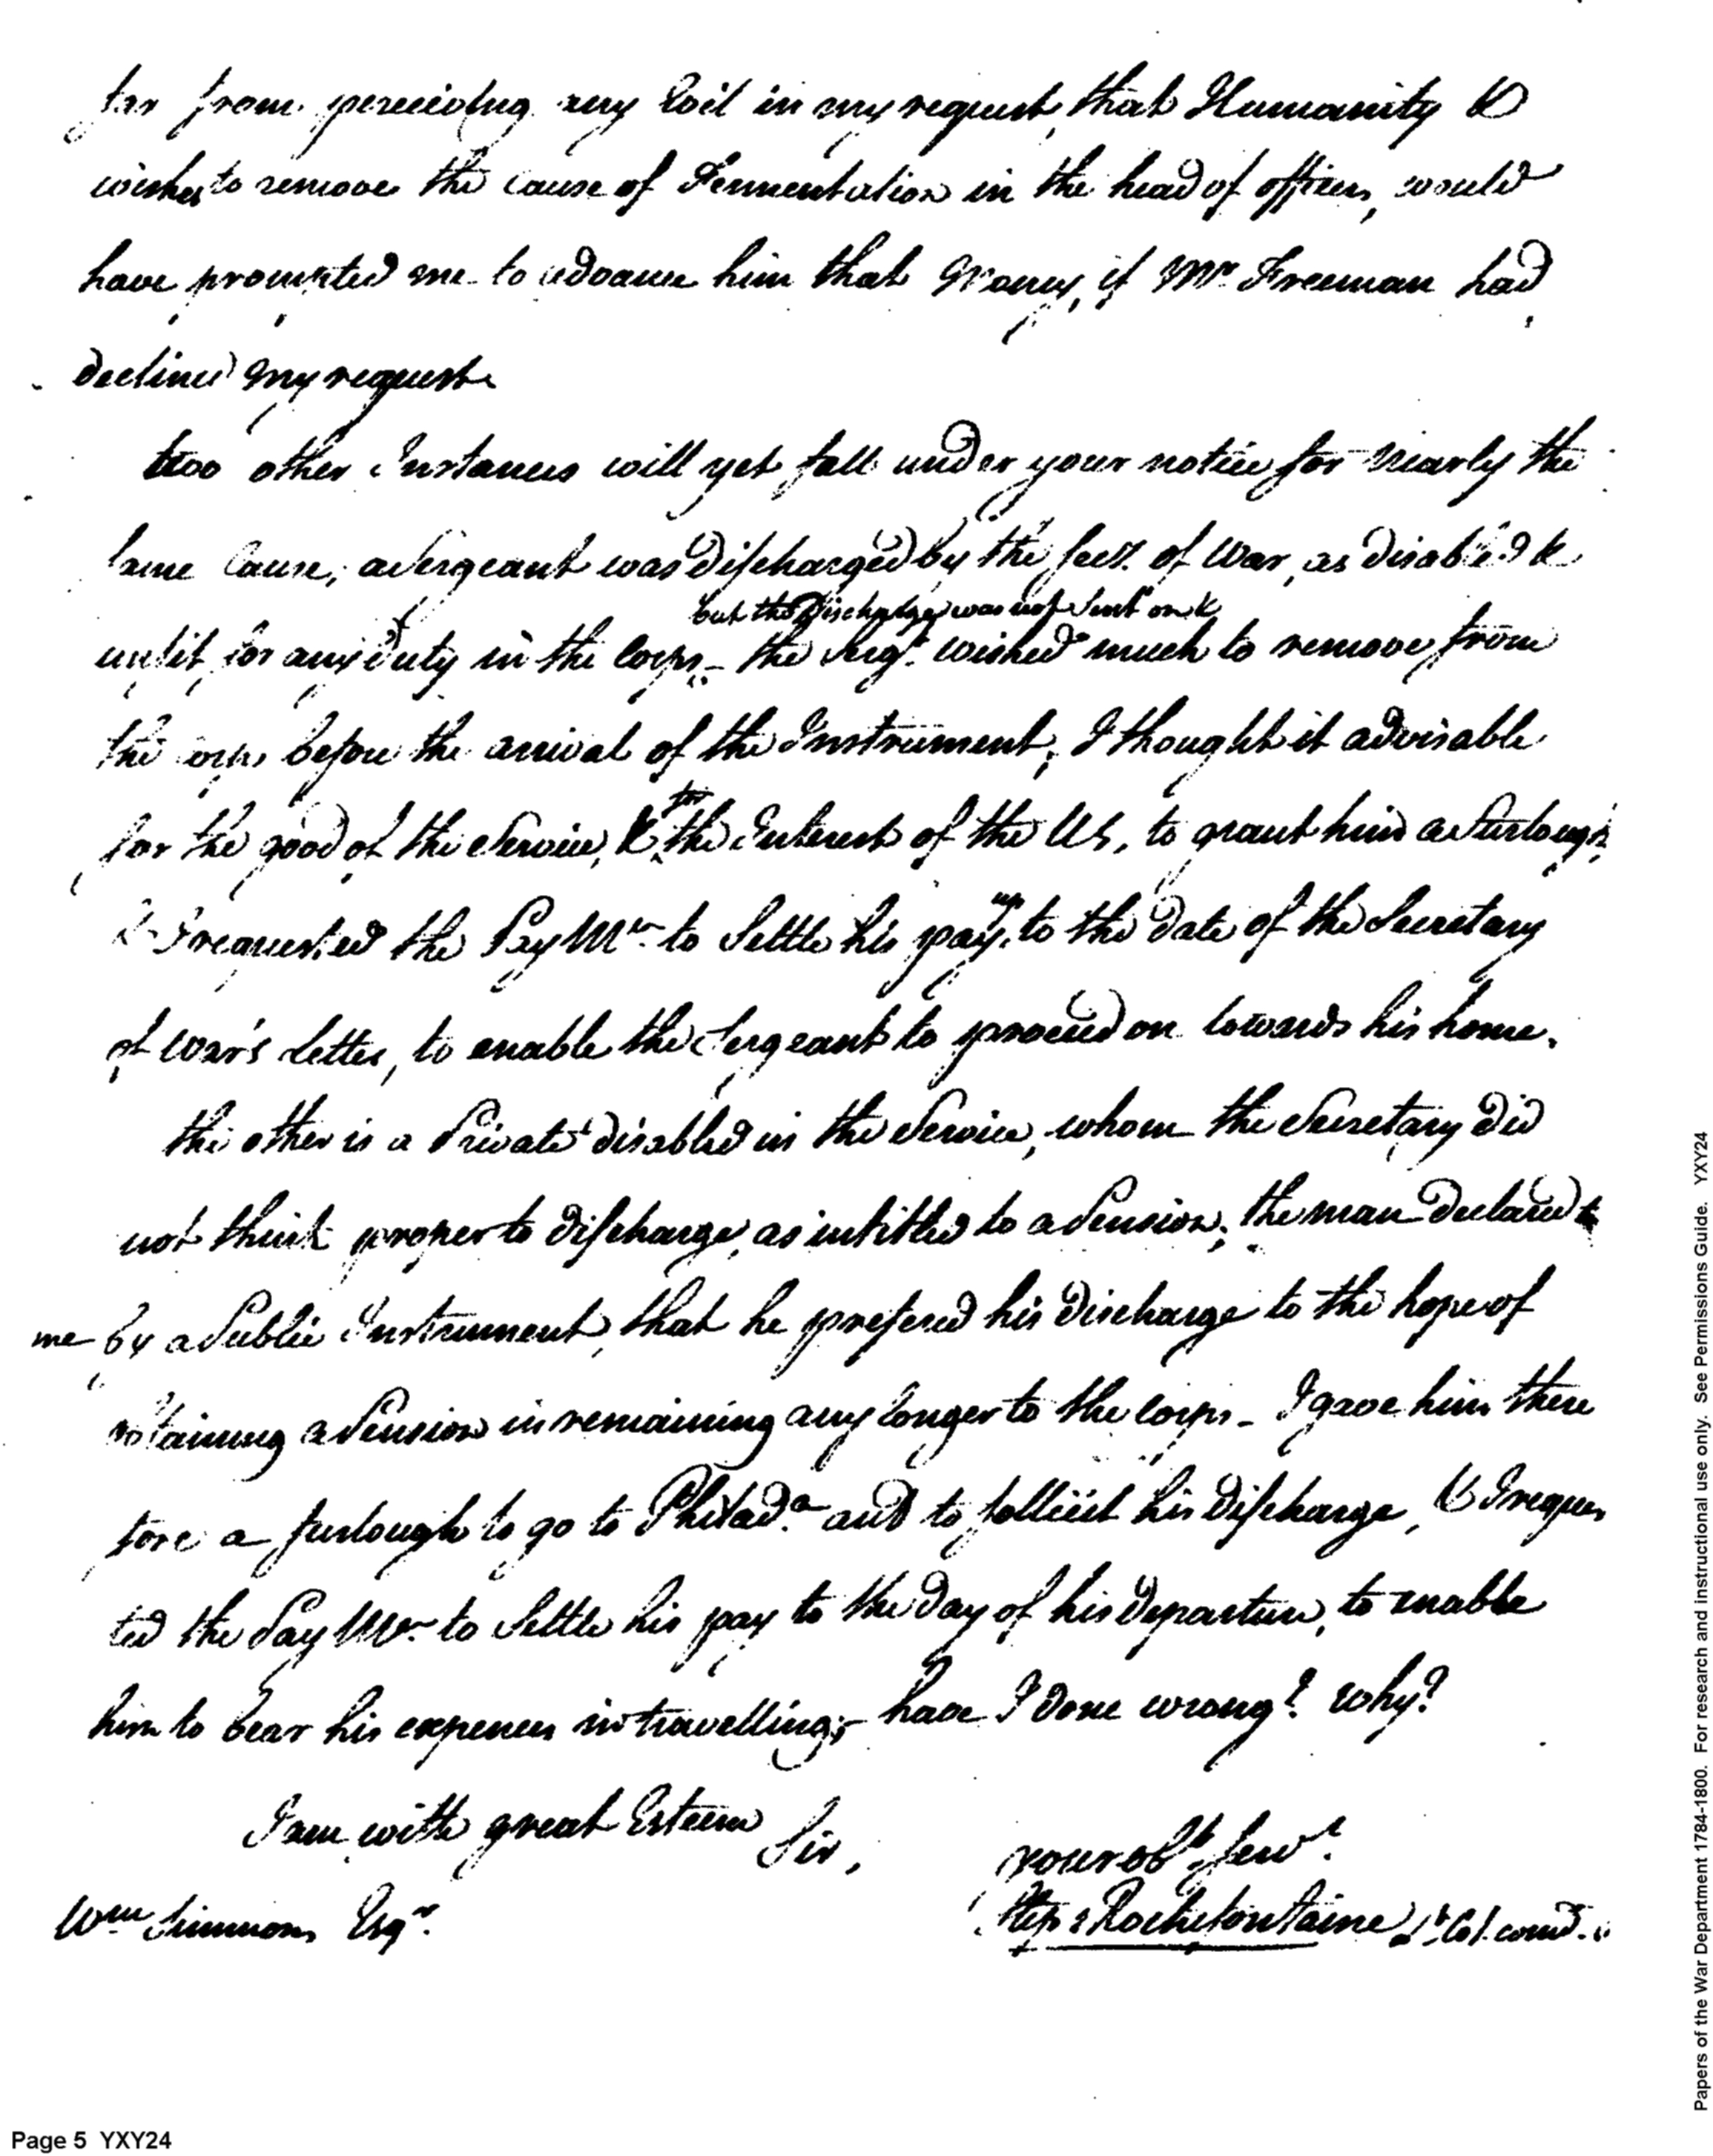 far from perceiving any Evil in my request, that Humanity &
wishes to remove the cause of Fermentation in the head of officers, would
have prompted me to advance him that Money, if Mr Freeman had
declined my request.
two other Instances will yet fall under your notice for nearly the
same Cause; a Sergeant was Discharged by the Secy. of War, as disabled &
but the Discharge was not Sent on &
unfit for any Duty in the Corps - the Sergt. wished much to remove from
the corps before the arrival of the Instrument; I thought it advisable
for
for the good of the Service, & the Interest of the US, to grant him a furlough,
up
& I requested the Pay Mr to Settle his pay, to the Date of the Secretary
of War's Letter, to enable the Sergeant to proceed on towards his home.
the other is a Private disabled in the Service, whom the Secretary Did
not think proper to Discharge, as intitled to a Pension; the man Declared to
me by a Public Instrument, that he prefered his Discharge to the hope of
obtaining a Pension in remaining any longer to the Corps - I gave him there
fore a furlough to go to Philada. and to sollicit his Discharge, & I reques
ted the Pay Mr to Settle his pay to the Day of his Departure, to enable
him to bear his expences in travelling; - have I Done wrong? why?
I am with great Esteem
Sir,
your obt. Servt.
Wm Simmons Esqr.
Stepn Rochefontaine Lt Col. comd.
Papers of the War Department 1784-1800. For research and instructional use only. See Permissions Guide. YXY24
Page 5 YXY24